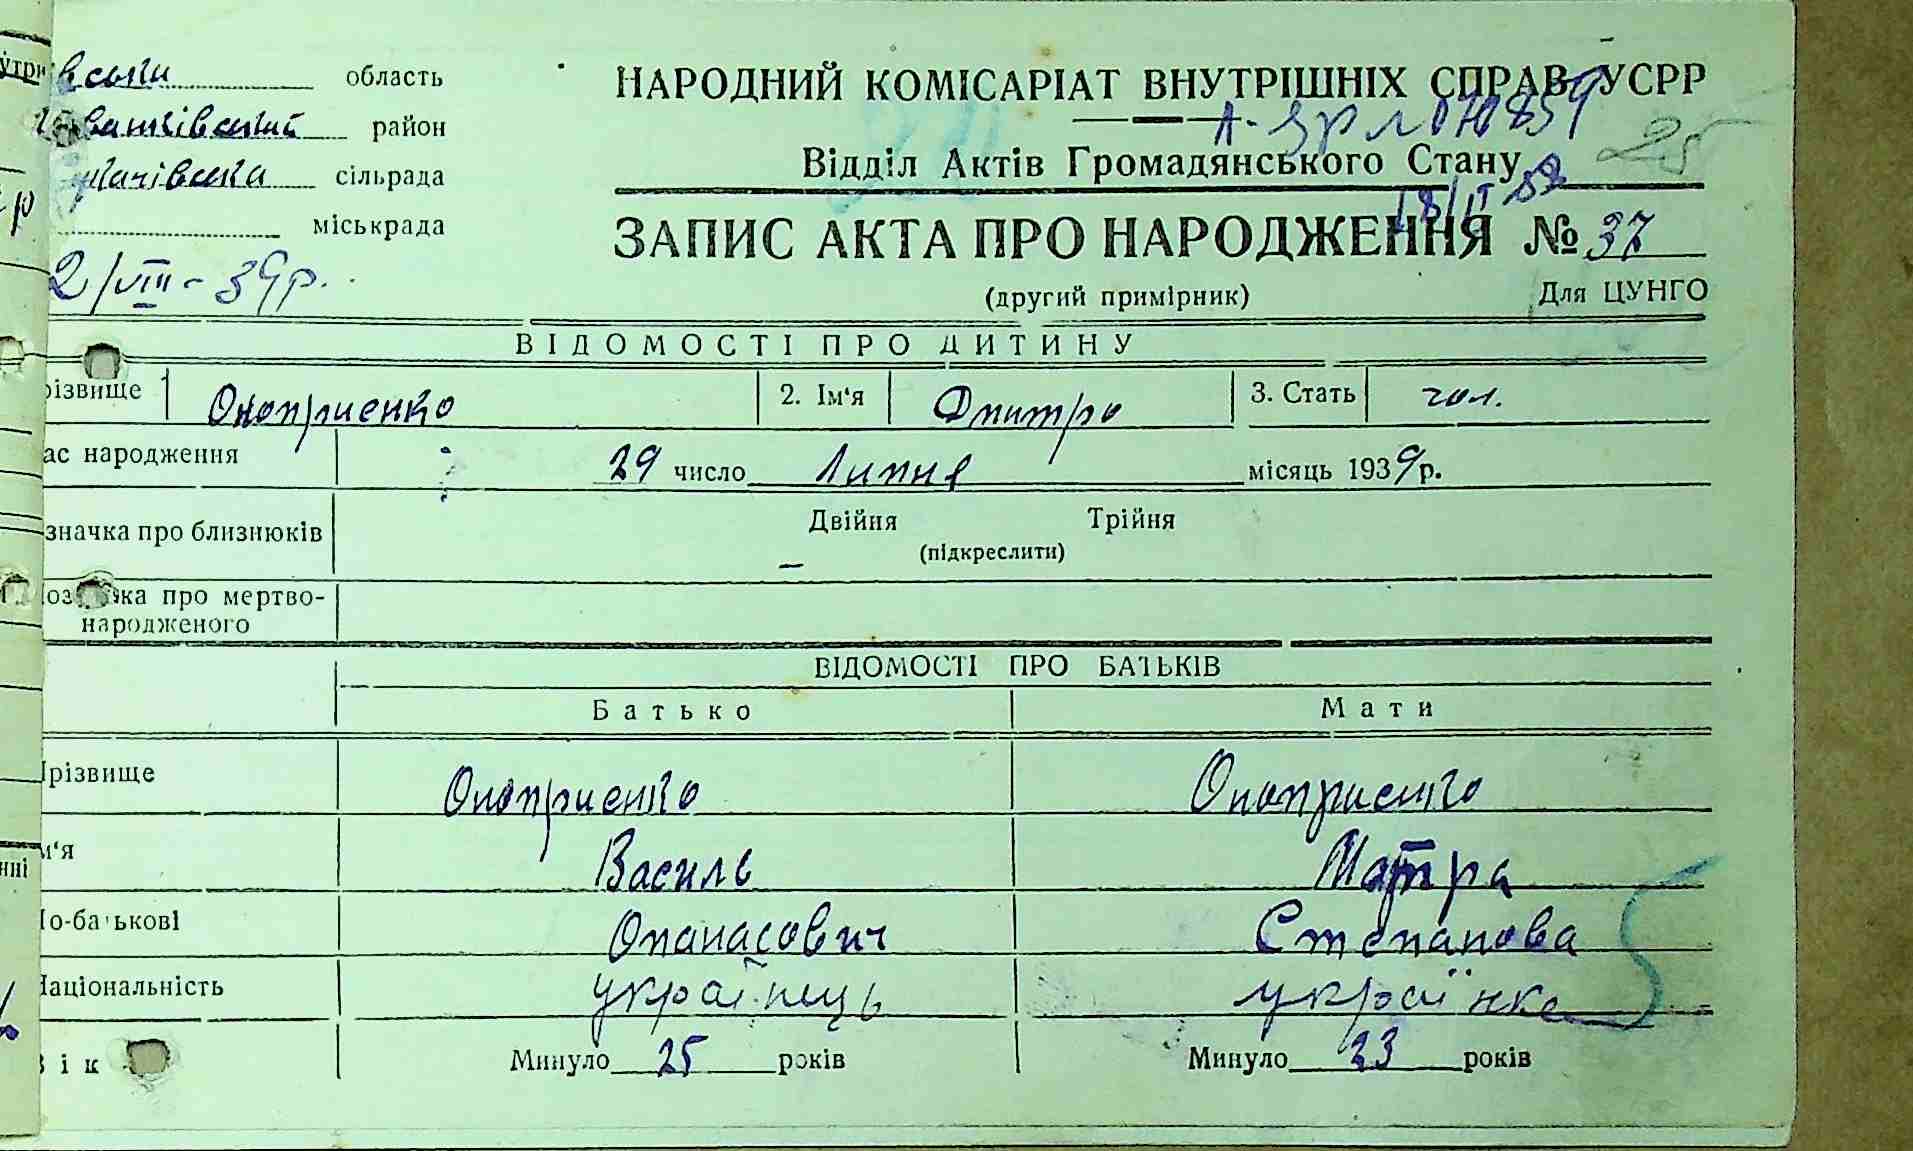 область
район
сільрада
міськрада
2/VIII - 39р.
НАРОДНИЙ КОМІСАРІАТ ВНУТРІШНІХ СПРАВ УСРР
25
Відділ Актів Громадянського Стану
ЗАПИС АКТА ПРО НАРОДЖЕННЯ № 37
(другий примірник) Для ЦУНГО
ВІДОМОСТІ ПРО ДИТИНУ
різвище Оноприенко 2. Ім'я Дмитро 3. Стать чол.
ас народження 29 число Липня місяць 1939 р.
значка про близнюків Двійня Трійня
(підкреслити)
ка про мертво-
народженого
ВІДОМОСТІ ПРО БАТЬКІВ
Батько Мати
різвище Оноприенко Оноприенко
м'я Василь
о-батькові Опанасович Степанова
аціональність українець українка
ік Минуло 25 років Минуло 23 років